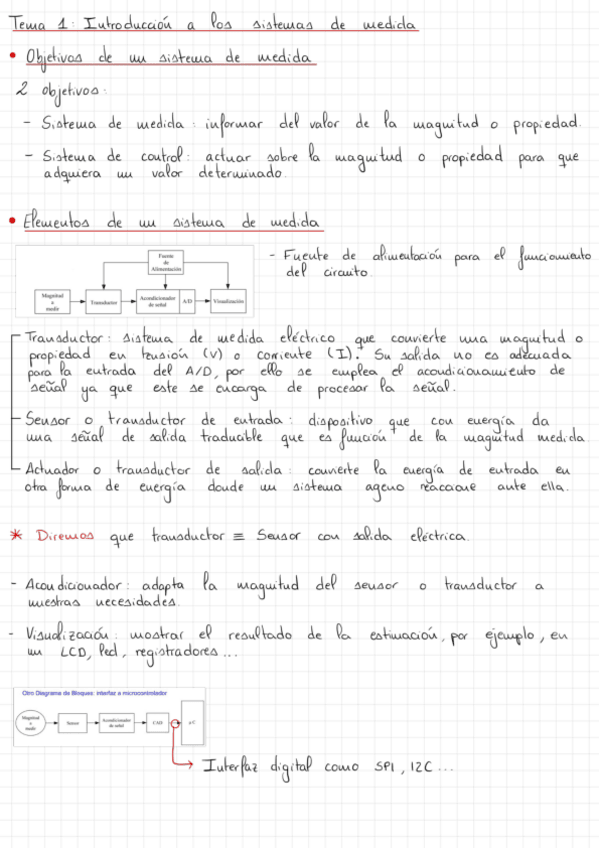 Tema 1: Introducción a los sistemas de medida
• Objetivos de un sistema de medida
2 objetivos:
- Sistema de medida: informar del valor de la magnitud o propiedad.
- Sistema de control: actuar sobre la magnitud o propiedad para que
adquiera un valor determinado.
• Elementos de un sistema de medida
Fuente
de
Alimentación
Magnitud
a
medir
Transductor
Acondicionador
de señal
A/D
Visualización
- Fuente de alimentación para el funcionamiento
del circuito.
Transductor: sistema de medida eléctrico que convierte una magnitud o
propiedad en tensión (V) o corriente (I). Su salida no es adecuada
para la entrada del A/D, por ello se emplea el acondicionamiento de
señal ya que este se encarga de procesar la señal.
Sensor o transductor de entrada: dispositivo que con energía da
una señal de salida traducible que es función de la magnitud medida.
Actuador o transductor de salida: convierte la energía de entrada en
otra forma de energía donde un sistema ageno reaccione ante ella.
* Diremos que transductor ≡ Sensor con salida eléctrica.
- Acondicionador: adapta la magnitud del sensor o transductor a
nuestras necesidades.
- Visualización: mostrar el resultado de la estimación, por ejemplo, en
un LCD, led, registradores...
Otro Diagrama de Bloques: interfaz a microcontrolador
Magnitud
a
medir
Sensor
Acondicionador
de señal
CAD
Interfaz digital como SPI, I2C...